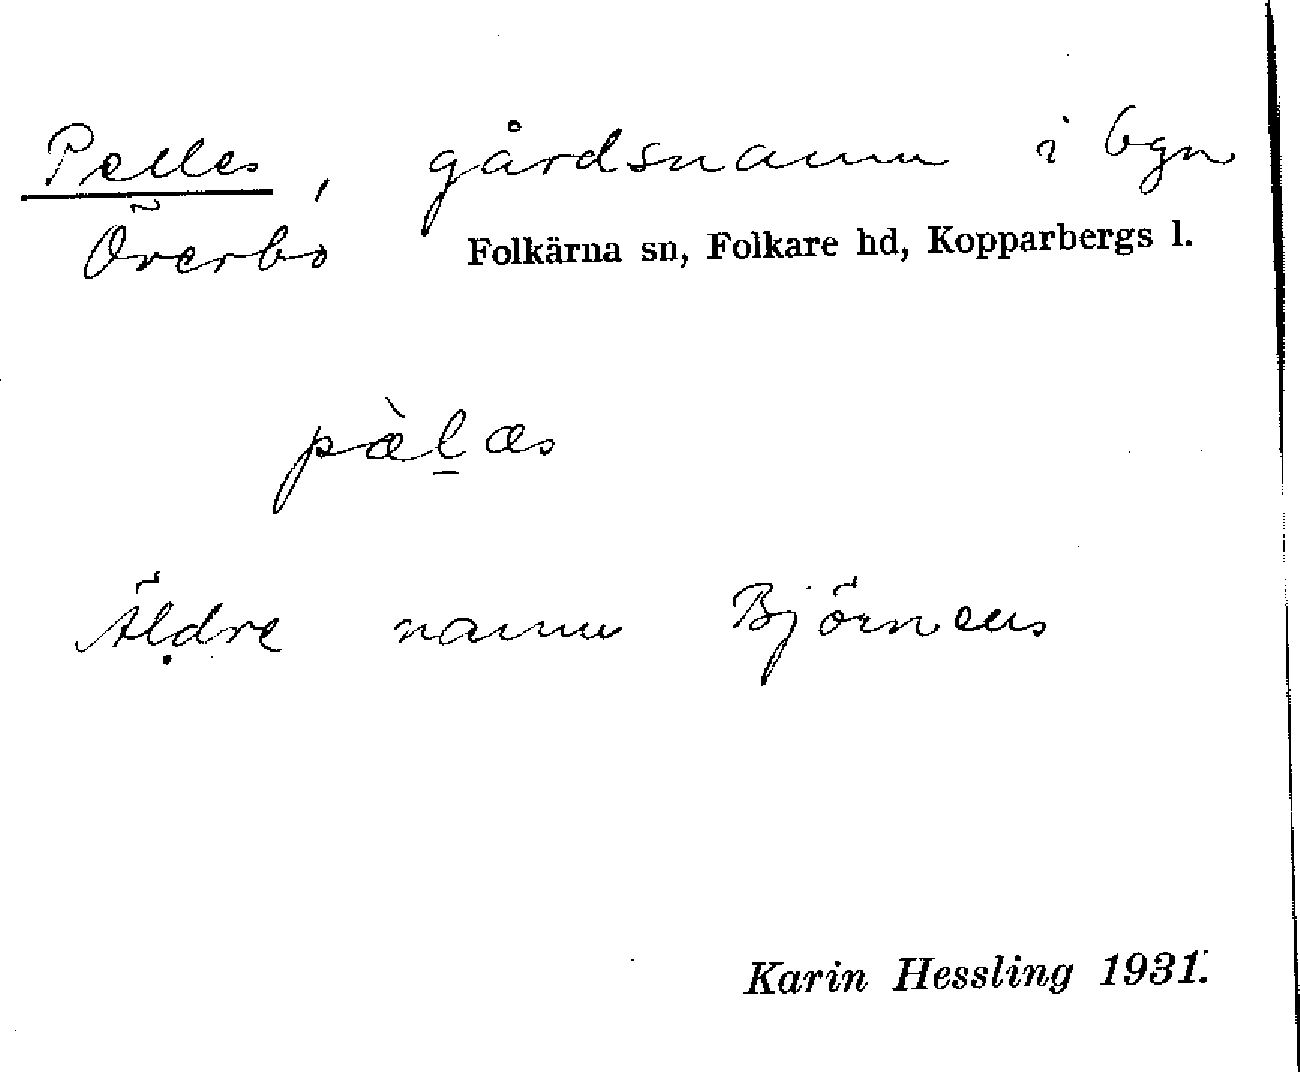 Pelles, gårdsnamn i bgn
Överbo Folkärna sn, Folkare hd, Kopparbergs l.
pæ̀l̠æs
Äldre namn Björnens
Karin Hessling 1931.